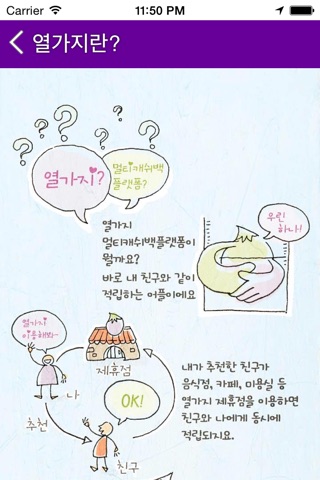 Carrier 11:50 PM
열가지란?
열가지?
멀티캐쉬백
플랫폼?
열가지
멀티캐쉬백플랫폼이
뭘까요?
바로 내 친구와 같이
적립하는 어플이에요
우린
하나!
열가지
이용해봐~
제휴점
나
추천
OK!
친구
내가 추천한 친구가
음식점, 카페, 미용실 등
열가지 제휴점을 이용하면
친구와 나에게 동시에
적립되지요.